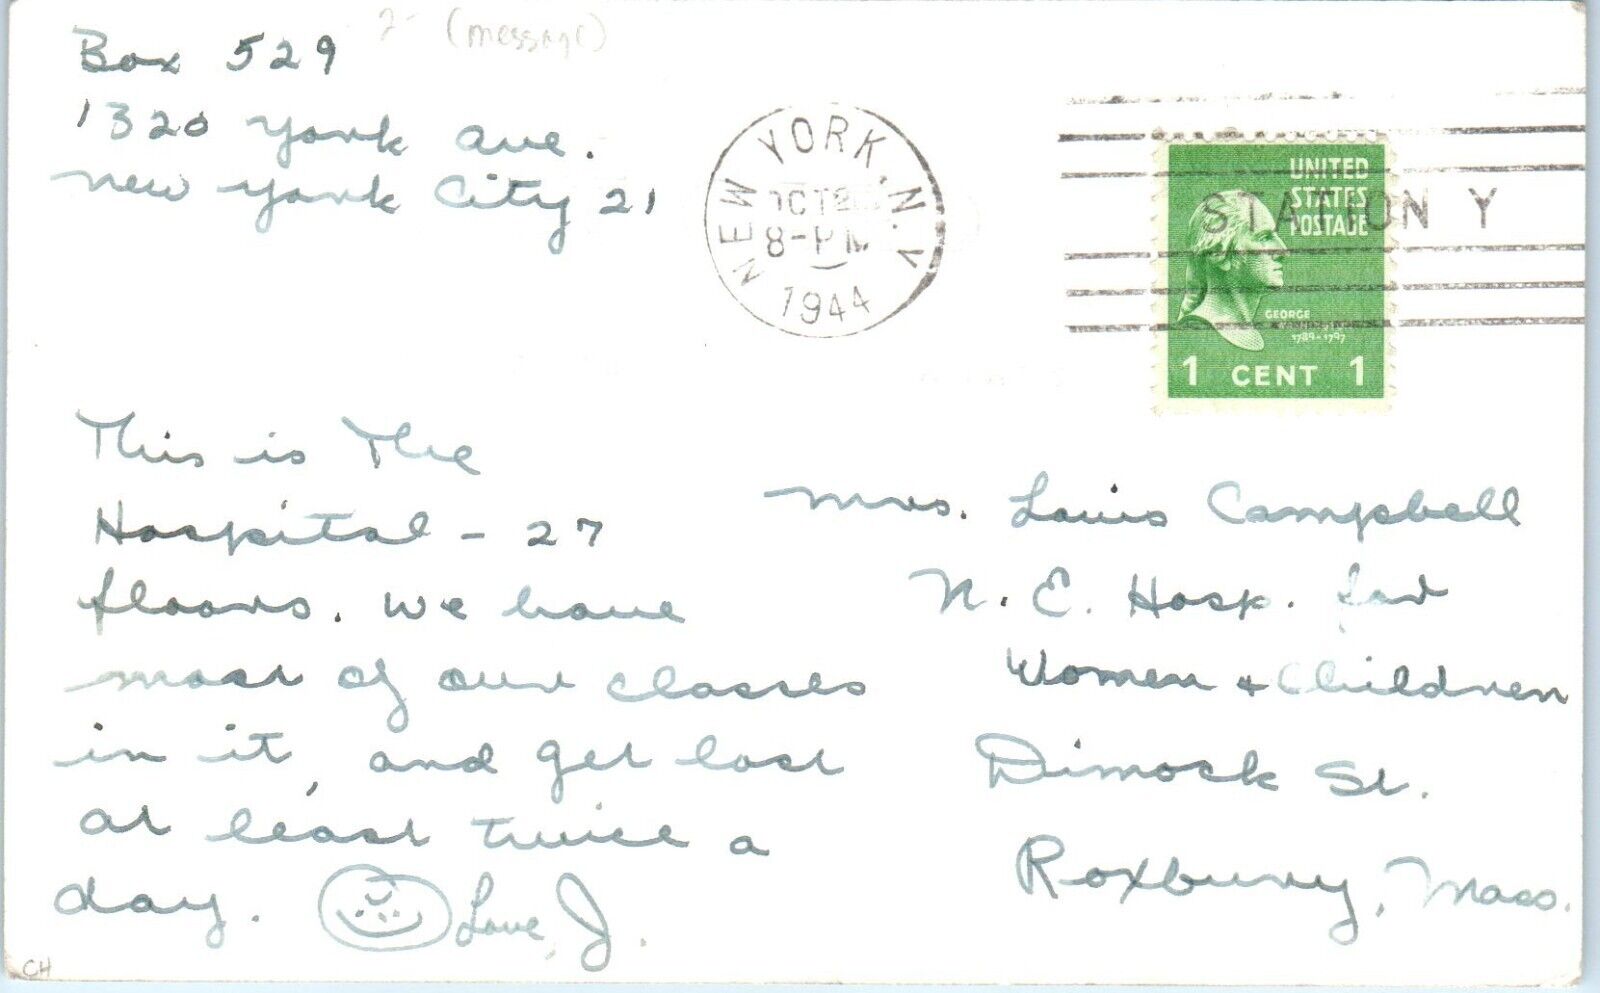 2- (message)
Box 529
1320 York Ave.
New York City 21
NEW YORK, N.Y.
OCT
8-PM
1944
STATION Y
UNITED
STATES
POSTAGE
GEORGE
1789-1797
1 CENT 1
This is The
Hospital - 27
floors. We have
most of our classes
in it, and get lost
at least twice a
day. Love, J.
Mrs. Louis Campbell
N. E. Hosp. for
Women + Children
Dimock St.
Roxbury, Mass.
CH